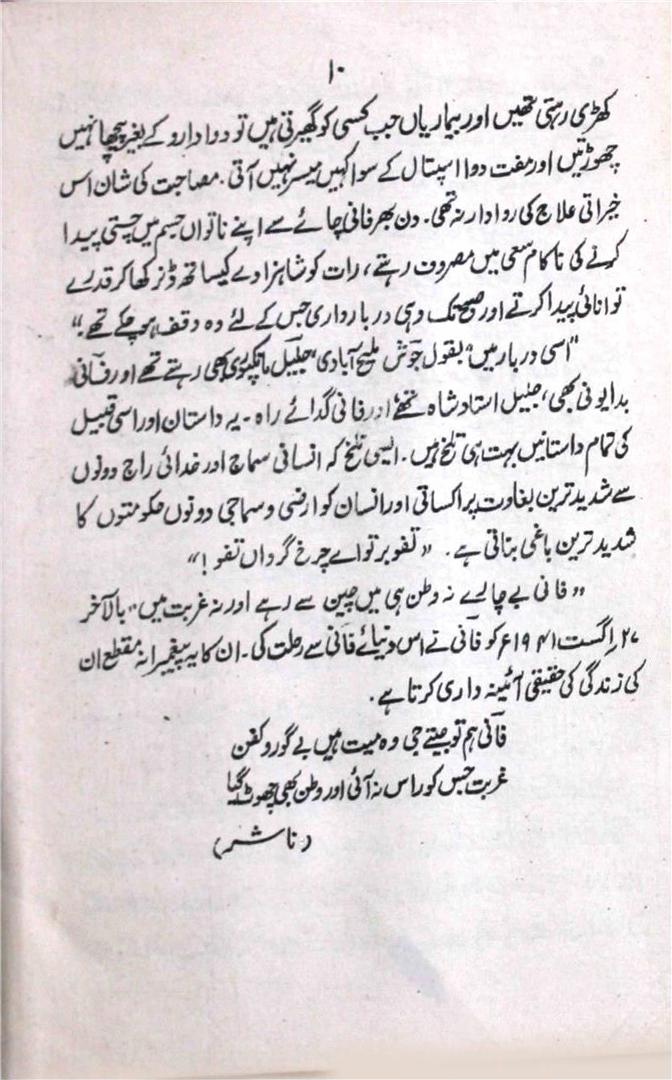 ۱۰
کھڑی رہتی تھیں اور بیماریاں جب کسی کو گھیرتی ہیں تو دوا دارو کے بغیر پیچھا نہیں
چھوڑتیں اور مفت دوا اسپتال کے سوا کہیں میسر نہیں آتی. مصاحبت کی شان اس
خیراتی علاج کی روادار نہ تھی. دن بھر فانی چائے سے اپنے ناتواں جسم میں چستی پیدا
کرنے کی ناکام سعی میں مصروف رہتے، رات کو شاہزادے کیساتھ ڈنر کھا کر قدرے
توانائی پیدا کرتے اور صبح تک وہی دربارداری جس کے لئے وہ وقف ہو چکے تھے."
"اسی دربار میں" بقول جوش ملیح آبادی، "جلیل مانکپوری بھی رہتے تھے اور فانی
بدایونی بھی، جلیل استاد شاہ تھے اور فانی گدائے راہ۔ یہ داستان اور اسی قبیل
کی تمام داستانیں بہت ہی تلخ ہیں. ایسی تلخ کہ انسانی سماج اور خدائی راج دونوں
سے شدید ترین بغاوت پر اکساتی اور انسان کو ارضی و سماجی دونوں حکومتوں کا
شدید ترین باغی بناتی ہے. "تفو بر تو اے چرخ گرداں تفو!"
"فانی بے چارے نہ وطن ہی میں چین سے رہے اور نہ غربت میں" بالآخر
۲۷ اگست ۱۹۴۱ء کو فانی نے اس دنیائے فانی سے رحلت کی۔ ان کا یہ پیغمبرانہ مقطع ان
کی زندگی کی حقیقی آئینہ داری کرتا ہے.
فانی ہم تو جیتے جی وہ میت ہیں بے گور و کفن
غربت جس کو راس نہ آئی اور وطن بھی چھوٹ گیا
(ناشر)